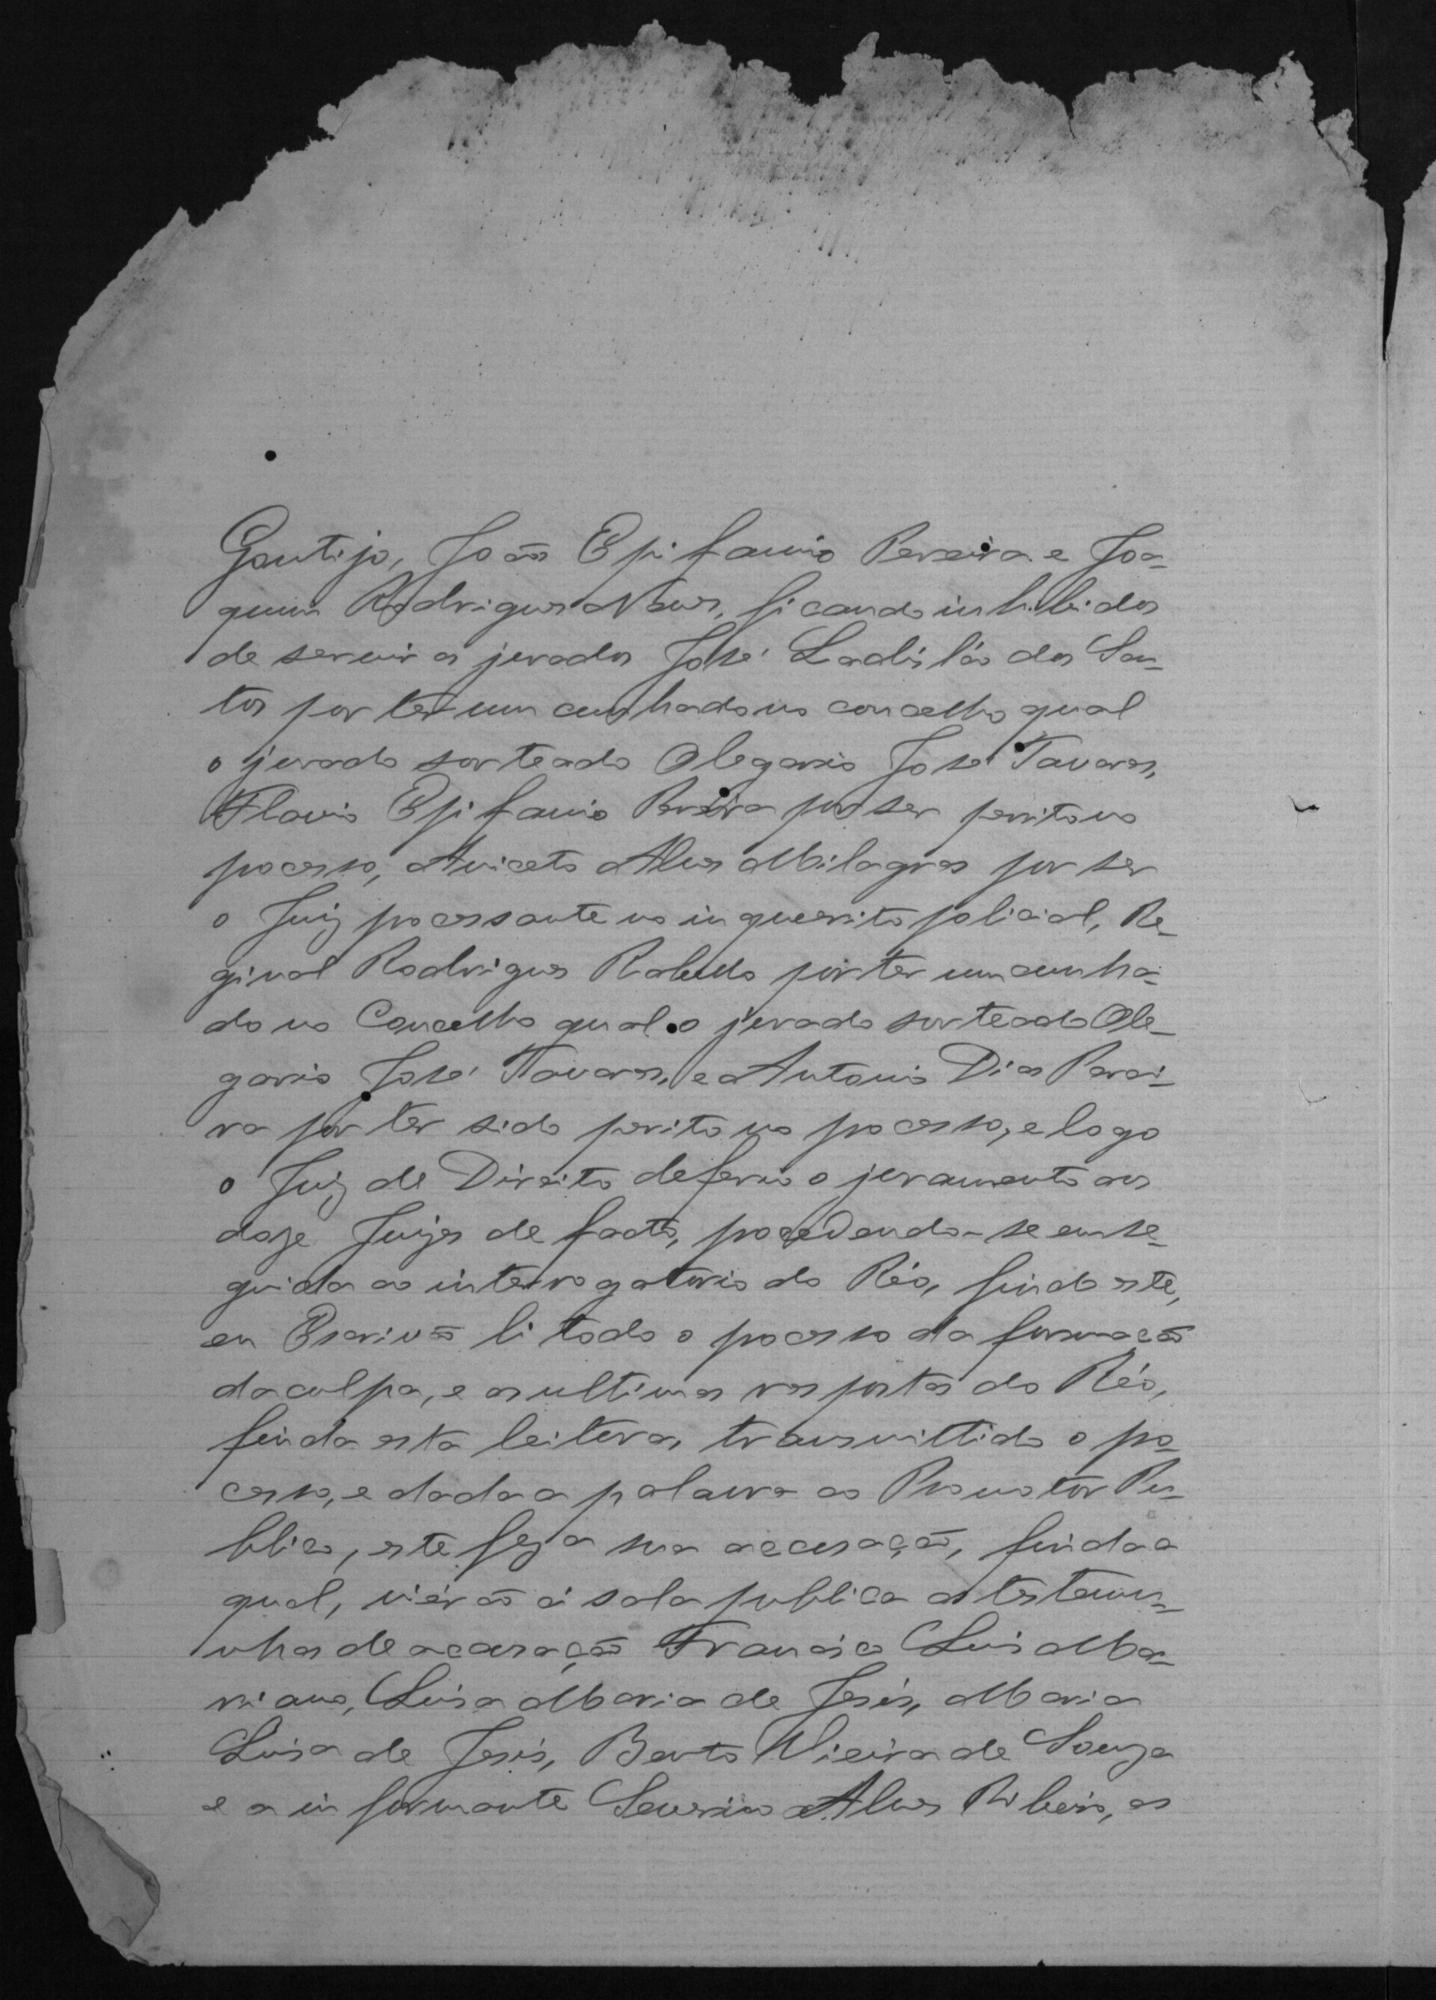 Gontijo, João Epifanio Pereira e Joa-
quim Rodrigues Neves, ficando inhibidos
de servir os jurados José Ladisláo dos San-
tos por ter um cunhado no concelho qual
o jurado sorteado Olegario José Tavares,
Flavio Epifanio Pereira por ser perito no
pocesso, Aniceto Alves Milagres por ser
o Juiz pocessante no inquerito policial, Re-
ginal Rodrigues Rabello por ter um cunha-
do no Concelho qual o jurado sorteado Ole-
gario José Tavares, e Antonio Dias Perei-
ra por ter sido perito no pocesso, e logo
o Juiz de Direito deferio o juramento aos
doze Juizes de facto, pocedendo-se em se-
guida ao interrogatorio do Réo, findo este,
eu Escrivão li todo o pocesso da formação
da culpa, e as ultimas respostas do Réo,
finda esta leitura, transmittido o po-
cesso, e dada a palavra ao Promotor Pu-
blico, este fez a sua accusação, finda a
qual, viérão á sala publica as testemu-
nhas de accusação Francisco Luis Ma-
riano, Luisa Maria de Jesús, Maria
Luisa de Jesús, Bento Vieira de Souza
e a informante Severino Alves Ribeiro, as